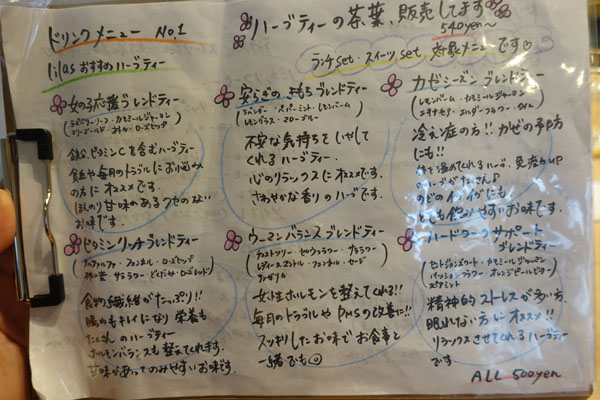 ドリンクメニュー No.1
lilas おすすめハーブティー
ハーブティーの茶葉、販売してます
540yen〜
ランチset・スイーツset 対象メニューです♡
女の子応援ブレンドティー
(ラズベリーリーフ・カモミールジャーマン
マリーゴールド・ネトル・ローズヒップ)
鉄分、ビタミンCを含むハーブティー
貧血や毎月のトラブルにお悩み
の方にオススメです。
ほんのり甘味のあるクセのない
お味です。
安らぎのきもちブレンドティー
(ラベンダー・ペパーミント・レモンバーム
レモングラス・マローブルー)
不安な気持ちをいやして
くれるハーブティー。
心のリラックスにオススメです。
さわやかな香りのハーブです。
カゼシーズンブレンドティー
(レモンバーム・カモミールジャーマン
エキナセア・エルダーフラワー・タイム)
冷え症の方!!カゼの予防
にも!!
体を温めてくれるハーブ、免疫力UP
のハーブがたくさん♪
のどのイガイガにも!
とても飲みやすいお味です。
ビタミンリッチブレンドティー
アルファルファ・フェンネル・ローズヒップ
サフラワー・どくだみ・ローズレッド)
食物繊維がたっぷり!!
腸からキレイになり 栄養も
たくさんのハーブティー
ホルモンバランスも整えてくれます。
甘味があってのみやすいお味です。
ウーマンバランスブレンドティー
チェストツリー・セロウフラワー・サフラワー
レディースマントル・フェンネル・セージ
女性ホルモンを整えてくれる!!
毎月のトラブルやPMSの改善に!!
スッキリしたお味でお食事と
一緒でも◎
ハードワークサポート
ブレンドティー
セントジョンズワート・カモミールジャーマン
パッションフラワー オレンジピールビター
スペアミント
精神的ストレスが多い方、
眠れない方にオススメ!!
リラックスさせてくれるハーブティー
です
ALL 500yen